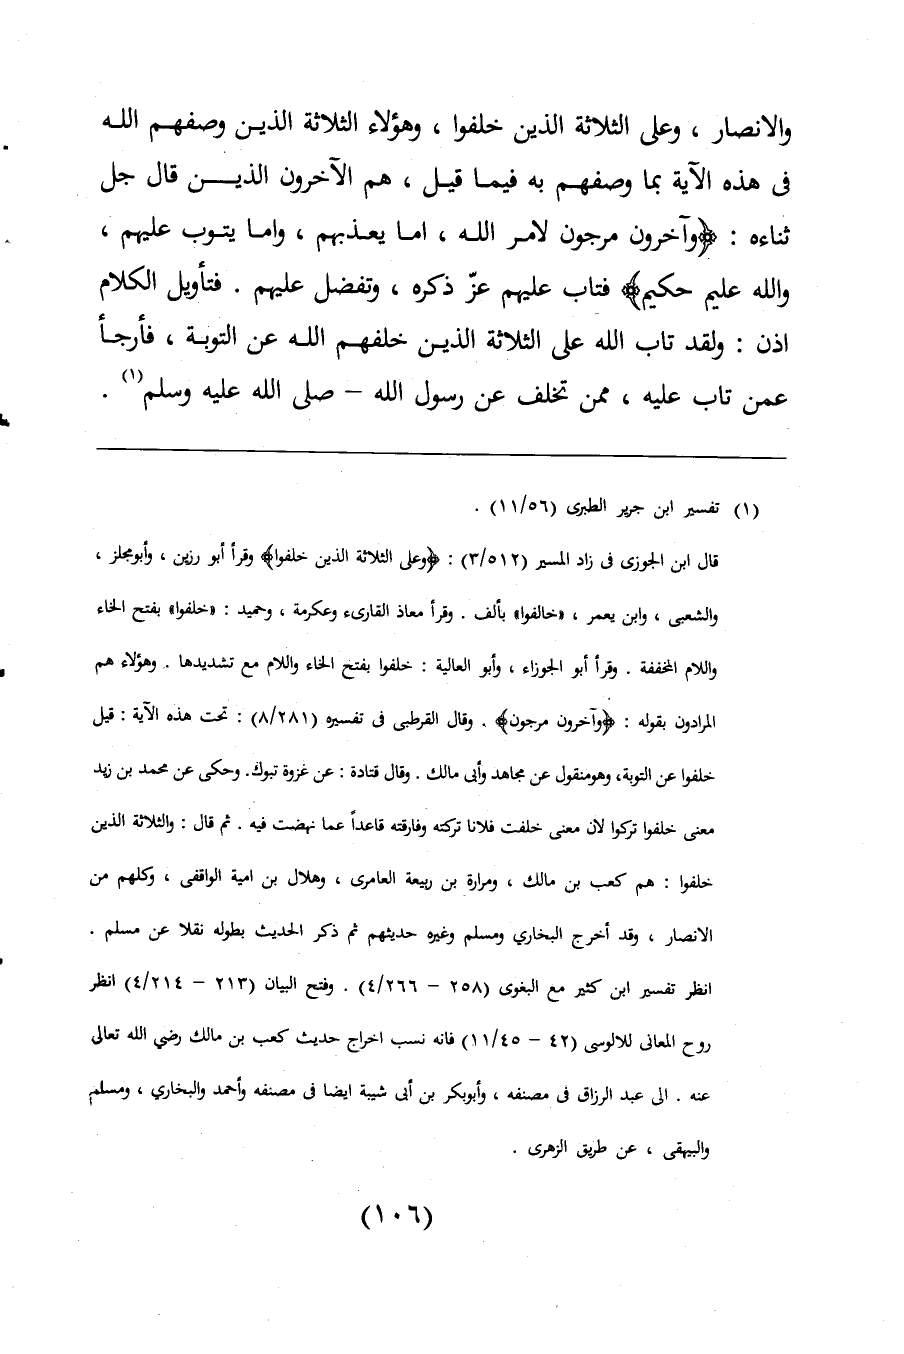 والانصار ، وعلى الثلاثة الذين خلفوا ، وهؤلاء الثلاثة الذين وصفهم الله
فى هذه الآية بما وصفهم به فيما قيل ، هم الآخرون الذين قال جل
ثناءه : ﴿وآخرون مرجون لامر الله ، اما يعذبهم ، واما يتوب عليهم ،
والله عليم حكيم﴾ فتاب عليهم عزّ ذكره ، وتفضل عليهم . فتأويل الكلام
اذن : ولقد تاب الله على الثلاثة الذين خلفهم الله عن التوبة ، فأرجأ
عمن تاب عليه ، ممن تخلف عن رسول الله – صلى الله عليه وسلم(١) .
(١) تفسير ابن جرير الطبرى (١١/٥٦) .
قال ابن الجوزى فى زاد المسير (٣/٥١٢) : ﴿وعلى الثلاثة الذين خلفوا﴾ وقرأ أبو رزين ، وأبومجلز ،
والشعبى ، وابن يعمر ، «خالفوا» بألف . وقرأ معاذ القارىء وعكرمة ، وحميد : «خلفوا» بفتح الخاء
واللام المخففة . وقرأ أبو الجوزاء ، وأبو العالية : خلفوا بفتح الخاء واللام مع تشديدها . وهؤلاء هم
المرادون بقوله : ﴿وآخرون مرجون﴾ . وقال القرطبى فى تفسيره (٨/٢٨١) : تحت هذه الآية : قيل
خلفوا عن التوبة، وهومنقول عن مجاهد وأبى مالك . وقال قتادة : عن غزوة تبوك. وحكى عن محمد بن زيد
معنى خلفوا تركوا لان معنى خلفت فلانا تركته وفارقته قاعداً عما نهضت فيه . ثم قال : والثلاثة الذين
خلفوا : هم كعب بن مالك ، ومرارة بن ربيعة العامرى ، وهلال بن امية الواقفى ، وكلهم من
الانصار ، وقد أخرج البخاري ومسلم وغيره حديثهم ثم ذكر الحديث بطوله نقلا عن مسلم .
انظر تفسير ابن كثير مع البغوى (٢٥٨ – ٤/٢٦٦) . وفتح البيان (٢١٣ – ٤/٢١٤) انظر
روح المعانى للالوسى (٤٢ – ١١/٤٥) فانه نسب اخراج حديث كعب بن مالك رضي الله تعالى
عنه . الى عبد الرزاق فى مصنفه ، وأبوبكر بن أبى شيبة ايضا فى مصنفه وأحمد والبخاري ، ومسلم
والبيهقى ، عن طريق الزهرى .
(١٠٦)